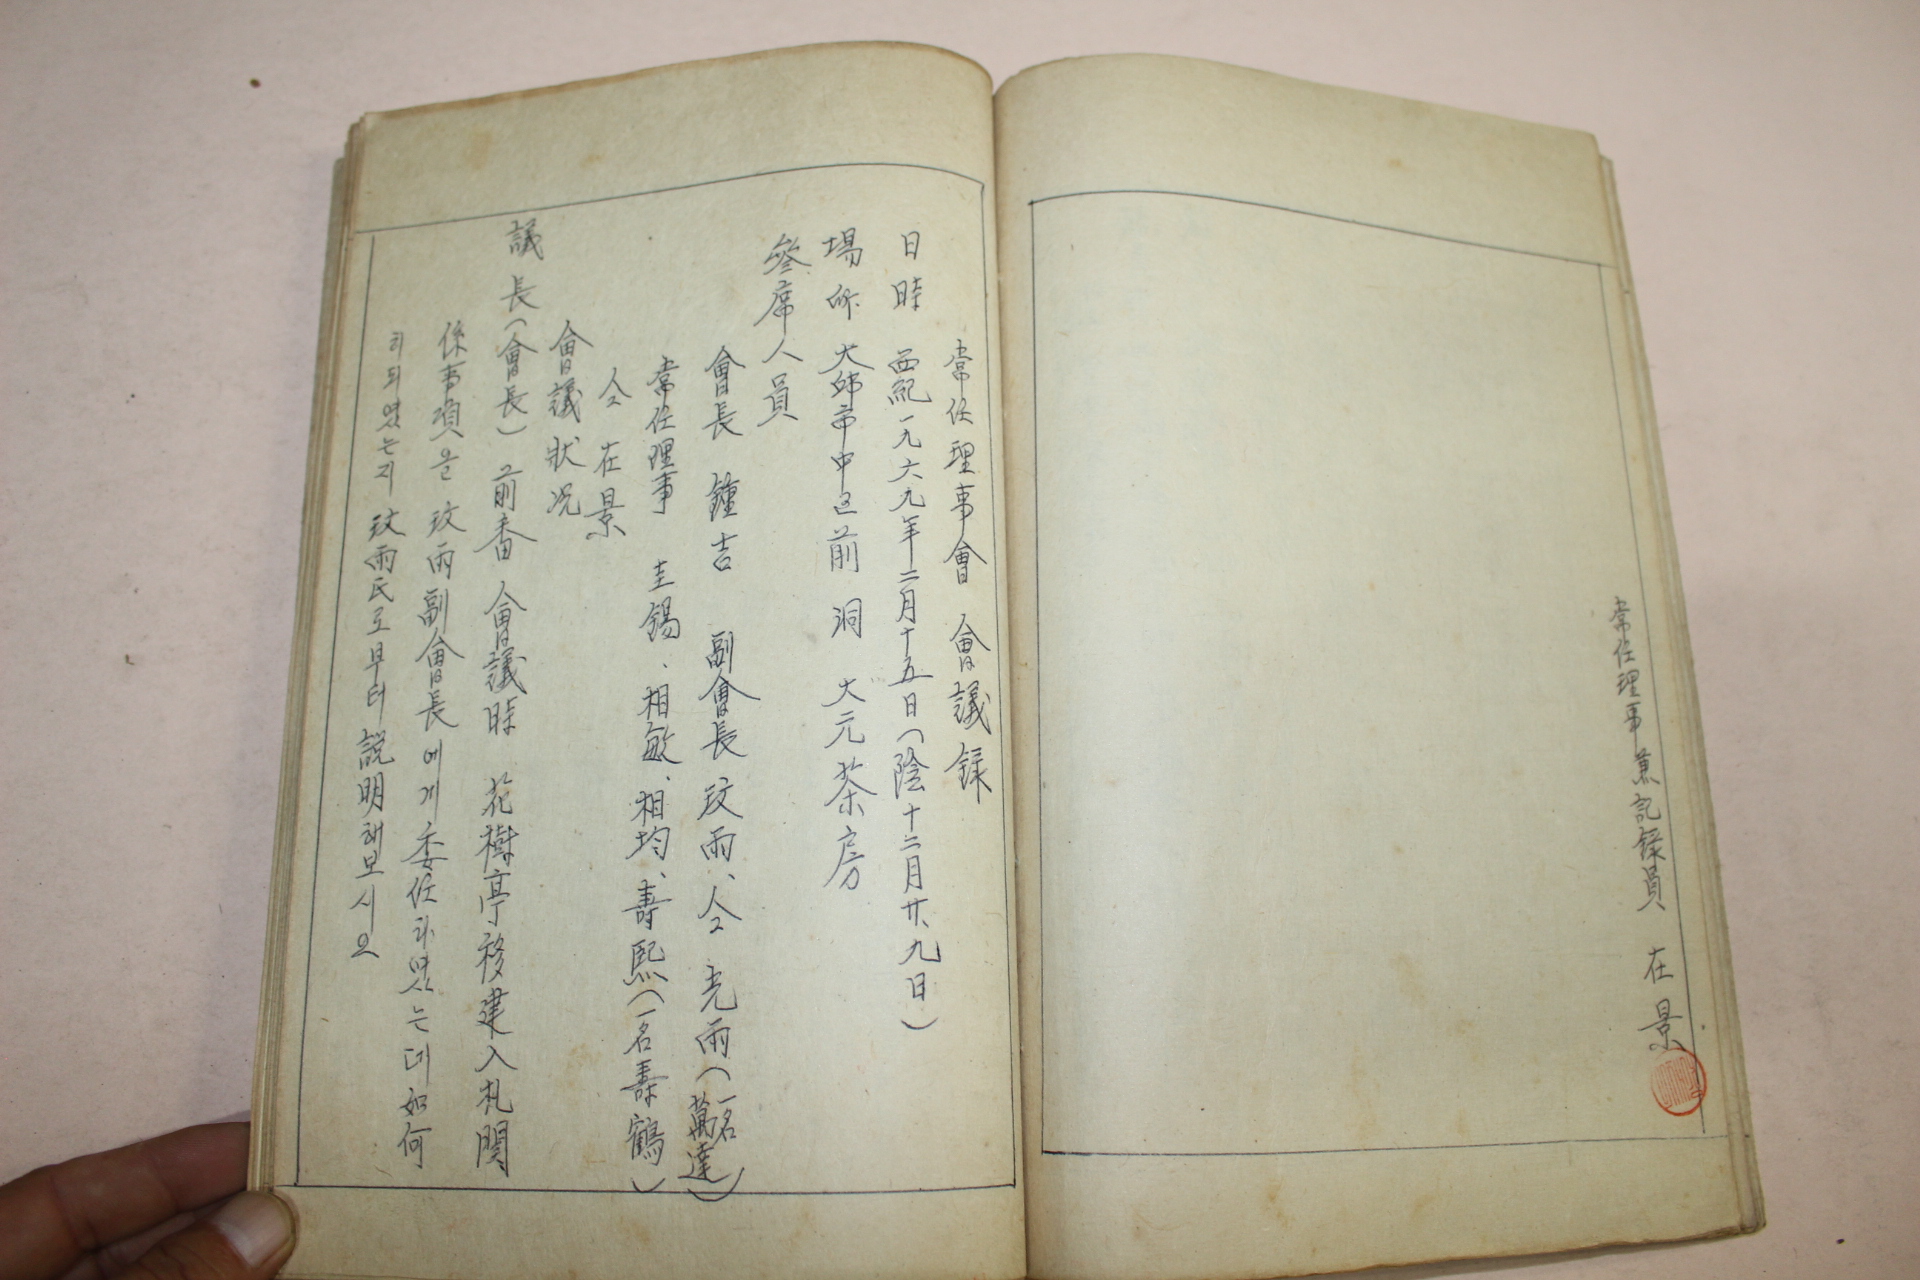 常任理事 兼記録員 在景
常任理事會 會議録
日時 西紀一九六九年二月十五日(陰十二月廿九日)
場所 大邱市中区前洞 大元茶房
參席人員
會長 鐘吉 副會長 玟雨、仝 光雨(一名萬達)
常任理事 圭錫、相敏、相均、壽熙(一名壽鶴)
仝 在景
會議狀况
議長(會長) 前番 會議時 花樹亭移建入札関
係事項을 玟雨副會長에게 委任하였는데 如何
히되였는지 玟雨氏로부터 説明해보시오